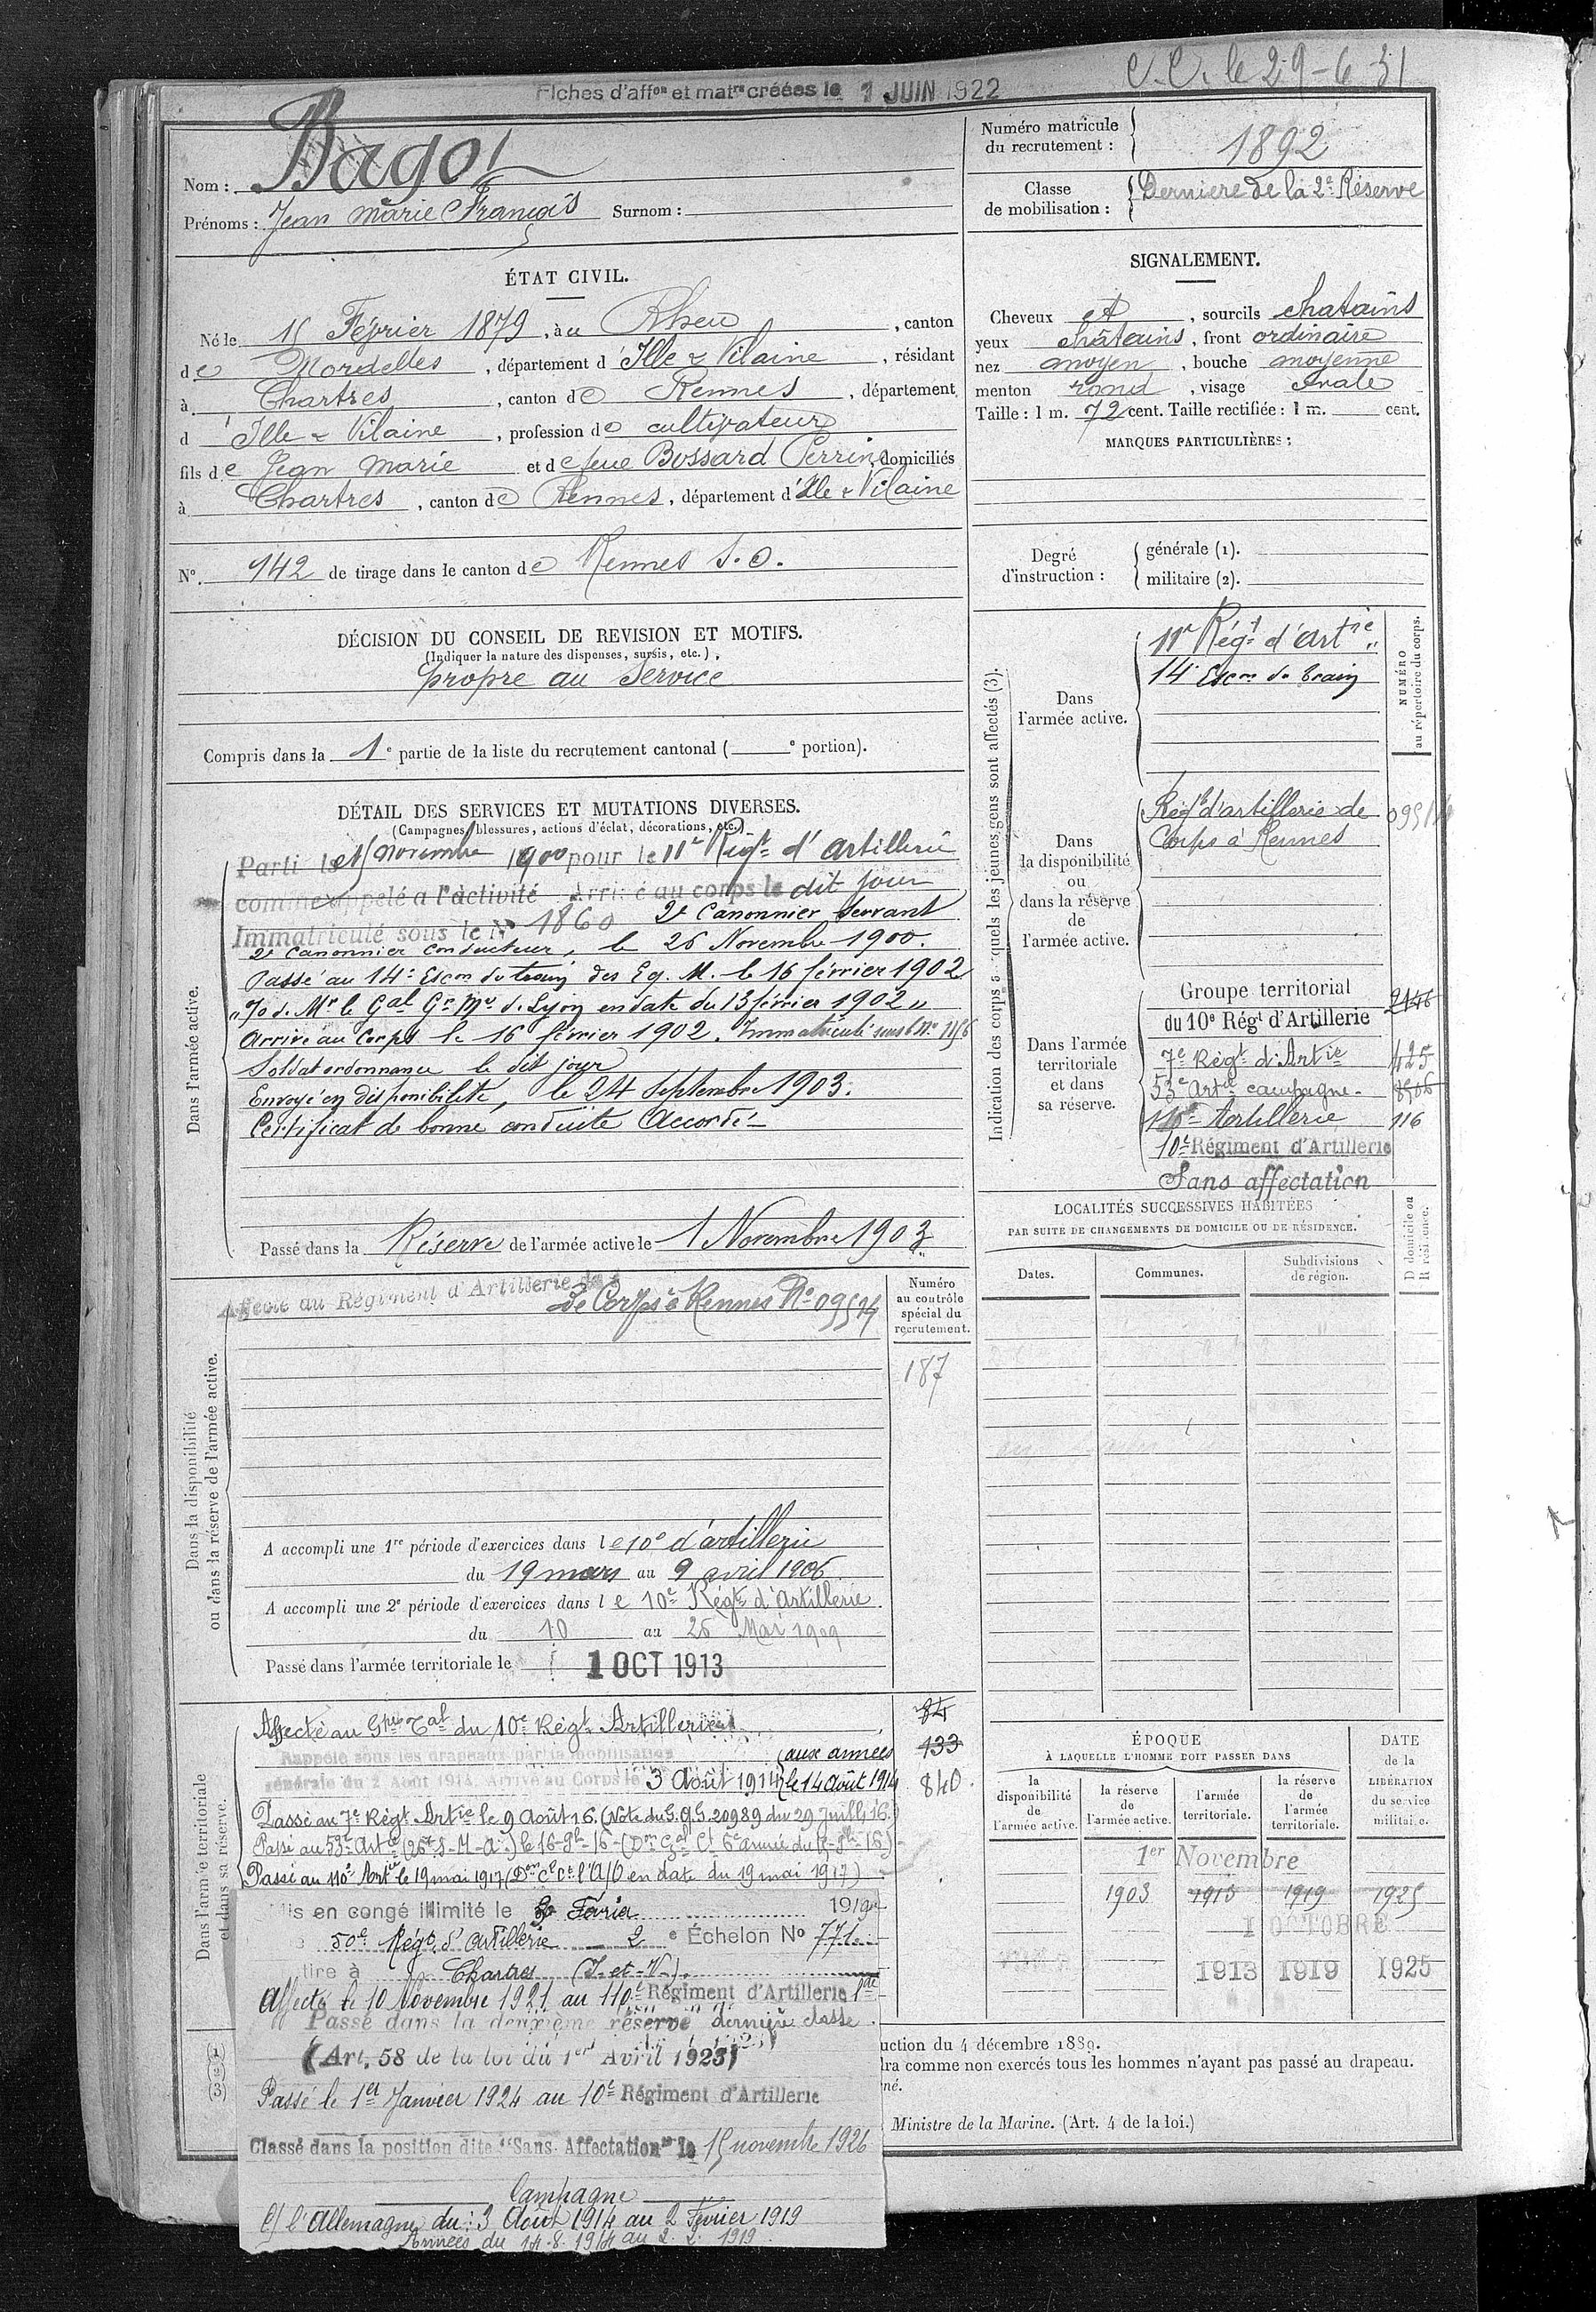 C.C. le 29-6-31
Fiches d'affon et matre créées le 1 JUIN 1922
Nom : Bagot
Prénoms : Jean Marie François Surnom :
Numéro matricule du recrutement : 1892
Classe de mobilisation : Dernière de la 2e Réserve
ÉTAT CIVIL.
Né le 15 Février 1879, à u Rheu, canton
de Mordelles, département d'Ille & Vilaine, résidant
à Chartres, canton de Rennes, département
d'Ille & Vilaine, profession de cultivateur
fils de Jean Marie et de feue Bossard Perrine, domiciliés
à Chartres, canton de Rennes, département d'Ille & Vilaine
No. 142 de tirage dans le canton de Rennes S.O.
SIGNALEMENT.
Cheveux et, sourcils chatains
yeux châtains, front ordinaire
nez moyen, bouche moyenne
menton rond, visage ovale
Taille : 1 m. 72 cent. Taille rectifiée : 1 m. cent.
MARQUES PARTICULIÈRES :
Degré d'instruction : générale (1).
militaire (2).
DÉCISION DU CONSEIL DE REVISION ET MOTIFS.
(Indiquer la nature des dispenses, sursis, etc.)
propre au service
Compris dans la 1e partie de la liste du recrutement cantonal ( e portion).
DÉTAIL DES SERVICES ET MUTATIONS DIVERSES.
(Campagnes, blessures, actions d'éclat, décorations, etc.)
Dans l'armée active.
Parti le novembre 1900 pour le 11e Régt d'artillerie
comme appelé à l'activité Arrivé au corps le dit jour
Immatriculé sous le No 1860 2e Canonnier servant
2e Canonnier conducteur, le 26 Novembre 1900.
Passé au 14e Escon du train des Eq. M. le 16 février 1902
"/o d. Mr le Gal Gr Mre d. Lyon en date du 13 février 1902"
Arrivé au Corps le 16 février 1902. Immatriculé sous le No
Soldat ordonnance le dit jour
Envoyé en disponibilité, le 24 septembre 1903.
Certificat de bonne conduite Accordé
Passé dans la Réserve de l'armée active le 1 Novembre 1903
Indication des corps auxquels les jeunes gens sont affectés (3).
NUMÉRO au répertoire du corps.
Dans l'armée active.
11e Régt d'Artie
14e Escon du train
Dans la disponibilité ou dans la réserve de l'armée active.
Régt d'artillerie de
Corps à Rennes
Dans l'armée territoriale et dans sa réserve.
Groupe territorial
du 10e Régt d'Artillerie 2146
7e Régt d'Artie 425
53e Artie campagne
110e Artillerie 116
10e Régiment d'Artillerie
Sans affectation
LOCALITÉS SUCCESSIVES HABITÉES
PAR SUITE DE CHANGEMENTS DE DOMICILE OU DE RÉSIDENCE.
Dates. Communes. Subdivisions de région. D domicile ou R résidence.
Dans la disponibilité ou dans la réserve de l'armée active.
Numéro au contrôle spécial du recrutement.
Affecté au Régiment d'Artillerie
de Corps à Rennes No 09514
187
A accompli une 1re période d'exercices dans le 10e d'artillerie
du 19 mars au 9 avril 1906
A accompli une 2e période d'exercices dans le 10e Régt d'Artillerie
du 10 au 26 Mai 1909
Passé dans l'armée territoriale le 1 OCT 1913
Dans l'armée territoriale et dans sa réserve.
84
133
840
Affecté au Gpe Tal du 10e Régt Artillerie
Rappelé sous les drapeaux par la mobilisation
générale du 2 Août 1914. Arrivé au Corps le 3 Août 1914 aux armées le 14 août 1914
Passé au 7e Régt Artie le 9 août 16. (Note du G.Q.G. 20989 du 29 Juillt 16.)
Passé au 53e Artie
Passé au 110e Artie le 19 mai 1917 en date du 19 mai 1917)
Mis en congé illimité le 3 Février 1919
50e Régt d'Artillerie 2e Échelon No 771
se retire à Chartres (I-et-V.)
Affecté le 10 Novembre 1921 au 110e Régiment d'Artillerie Lde
Passé dans la deuxième réserve dernière classe
(Art. 58 de la loi du 1er Avril 1923)
Passé le 1er Janvier 1924 au 10e Régiment d'Artillerie
Classé dans la position dite "Sans Affectation" le 15 novembre 1926
Campagne
C/ l'Allemagne du : 3 Août 1914 au 2 Février 1919
Armées du 14.8.1914 au 2.2.1919.
ÉPOQUE
À LAQUELLE L'HOMME DOIT PASSER DANS
la disponibilité de l'armée active.
la réserve de l'armée active.
l'armée territoriale.
la réserve de l'armée territoriale.
DATE de la LIBÉRATION du service militaire.
1er Novembre
1903 1913 1919 1925
1 OCTOBRE
1913 1919 1925
(1)
(2)
(3)
uction du 4 décembre 1889.
dra comme non exercés tous les hommes n'ayant pas passé au drapeau.
né.
Ministre de la Marine. (Art. 4 de la loi.)